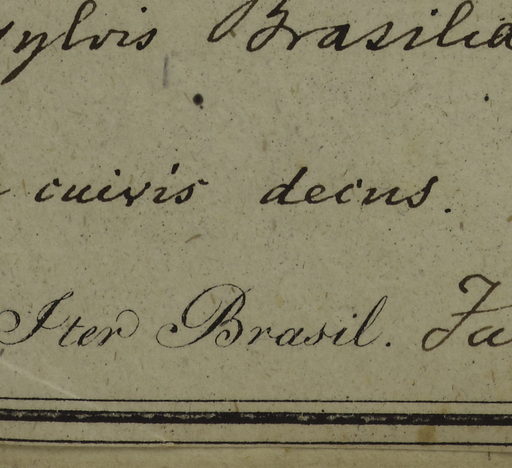 Sylvis Brasilia
cuivis decus.
Iter Brasil. Ja